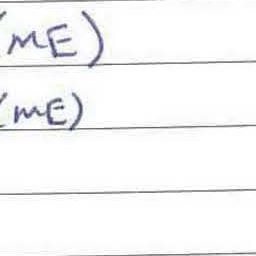 (ME)
(ME)